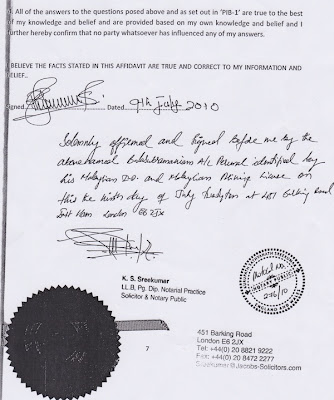 . All of the answers to the questions posed above and as set out in 'PIB-1' are true to the best
of my knowledge and belief and are provided based on my own knowledge and belief and I
urther hereby confirm that no party whatsoever has influenced any of my answers.
BELIEVE THE FACTS STATED IN THIS AFFIDAVIT ARE TRUE AND CORRECT TO MY INFORMATION AND
ELIEF..
igned Dated 9th July 2010
Solemnly affirmed and Signed Before me by the
abovenamed Balasubramaniam A/L Perumal identified by
his Malaysian I.D. and Malaysian Driving Licence on
this the ninth day of July Twenty ten at 451 Barking Road
East Ham London E6 2JX
K. S. Sreekumar
LL.B, Pg. Dip. Notarial Practice
Solicitor & Notary Public
7
451 Barking Road
London E6 2JX
Tel: +44(0) 20 8821 9222
Fax: +44(0) 20 8472 2277
Sreekumar@Jacobs-Solicitors.com